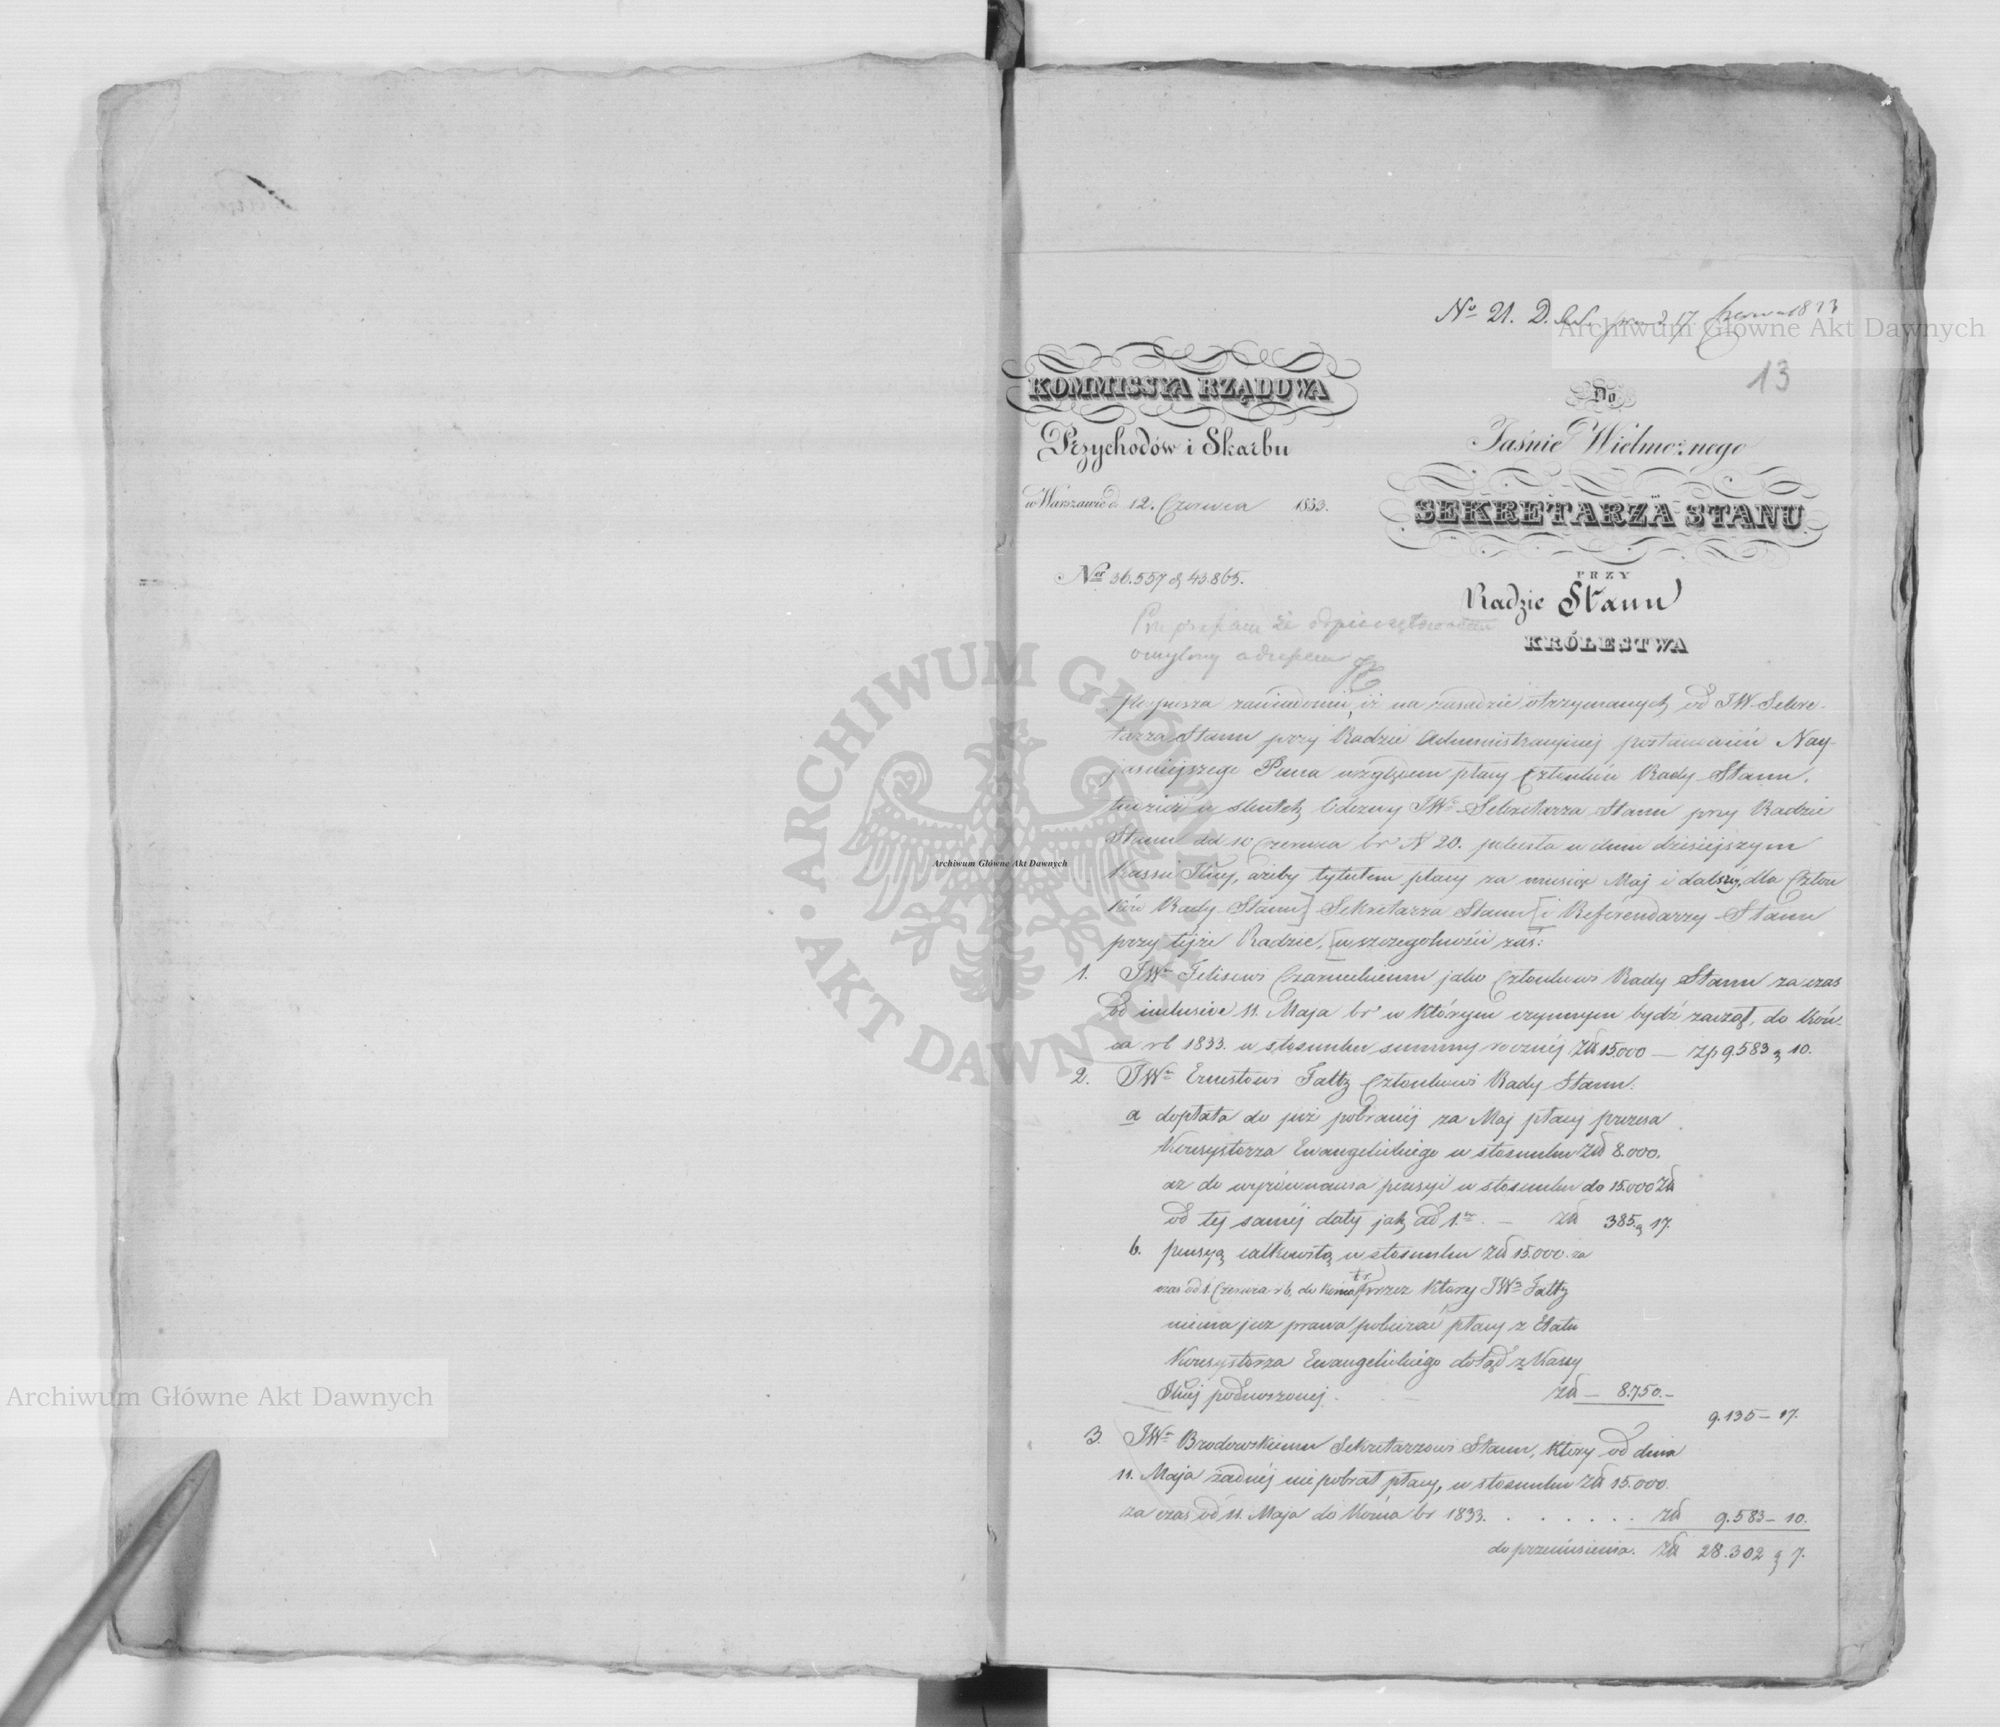 Nº 21. D. 17 Czerwca 1833
13
KOMMISSYA RZĄDOWA
Przychodów i Skarbu
w Warszawie d. 12. Czerwca 1833.
Nr 36.557 & 43.865.
Do
Jaśnie Wielmożnego
SEKRETARZA STANU
PRZY
Radzie Stanu
KRÓLESTWA
że odpieczętowałem
omylony adresem
zawiadomić, iż na zasadzie otrzymanych od JW Sekre-
tarza Stanu przy Radzie Administracyjnej postanowień Nay-
jaśniejszego Pana względem płacy Członków Rady Stanu,
tudzież w skutek Odezwy JWº Sekretarza Stanu przy Radzie
Stanu dd 10 Czerwca br N 20. poleciła w dniu dzisiejszym
Kassie Głnej, ażeby tytułem płacy za miesiąc Maj i dalszéy, dla Człon
ków Rady Stanu] Sekretarza Stanu [i Referendarzy Stanu
przy tejże Radzie, [w szczególności zaś:
1. JWu Felixowi Czarneckiemu jako Członkowi Rady Stanu za czas
od inclusive 11. Maja br w którym czynnym bydź zaczął, do koń-
ca rb 1833. w stosunku summy roczniéj Złł 15.000 — Zp 9.583 g 10.
2. JWu Ernestowi Faltz Członkowi Rady Stanu.
a dopłata do już pobranéj za Maj płacy prezesa
Konsystorza Ewangelickiego w stosunku Złł 8.000.
aż do wyrównania pensyi w stosunku do 15.000 Zł
od tej saméj daty jak ad 1. — Zł 385. g 17.
b. pensyą całkowitą w stosunku Złł 15.000 za
czas od 1. Czerwca rb. do końca tr przez który JWy Faltz
niema już prawa pobierać płacy z Etatu
Konsystorza Ewangelickiego dotąd z Kassy
Głnej podnoszonej. Zł — 8.750.—
9.135 — 17.
3. JWu Brodowskiemu Sekretarzowi Stanu, który od dnia
11. Maja żadnéj nie pobrał płacy, w stosunku Złł 15.000.
za czas od 11. Maja do końca br 1833. . . . . . . Zł 9.583 — 10.
do przeniesienia. Zł 28.302 g 7.
Archiwum Główne Akt Dawnych
Archiwum Główne Akt Dawnych
Archiwum Główne Akt Dawnych
ARCHIWUM GŁÓWNE • AKT DAWNYCH